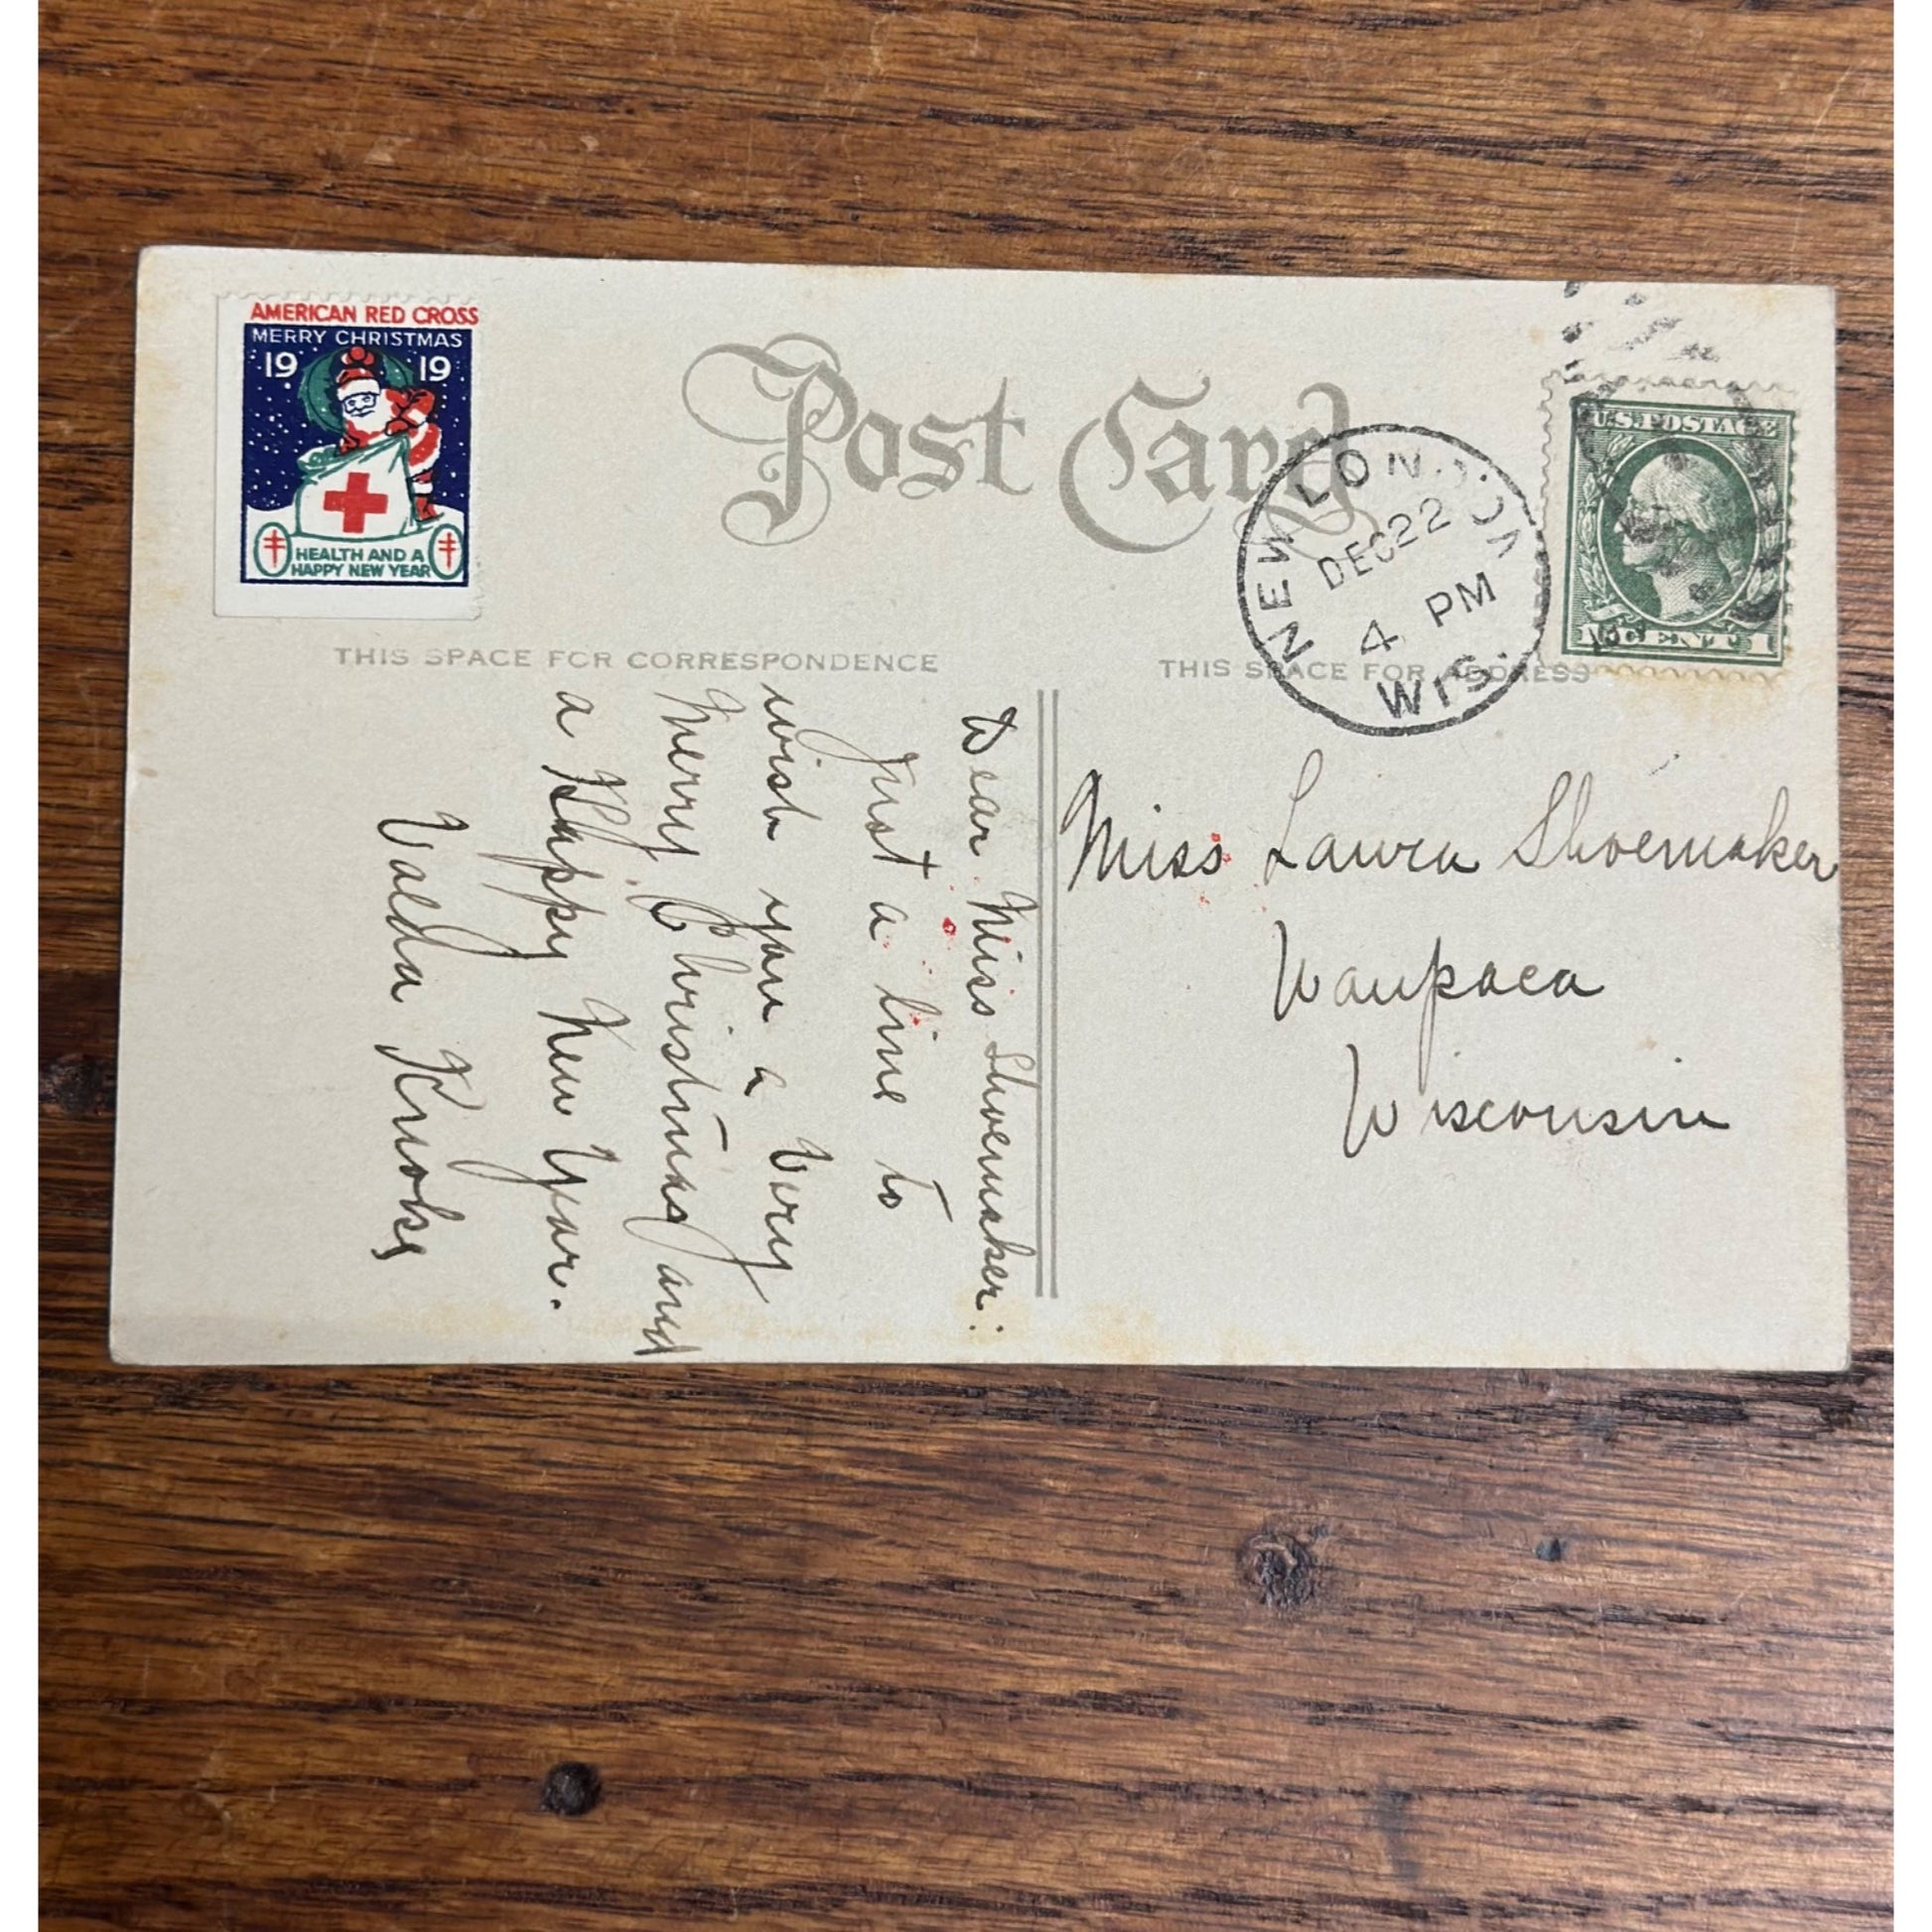 AMERICAN RED CROSS
MERRY CHRISTMAS
19 19
HEALTH AND A
HAPPY NEW YEAR
Post Card
NEW LONDON
DEC 22
4 PM
WIS.
U.S. POSTAGE
1 CENT 1
THIS SPACE FOR CORRESPONDENCE
THIS SPACE FOR ADDRESS
Dear Miss Shoemaker:
Just a line to
wish you a Very
Merry Christmas and
a Happy New Year.
Valda Knoke
Miss Laura Shoemaker
Waupaca
Wisconsin